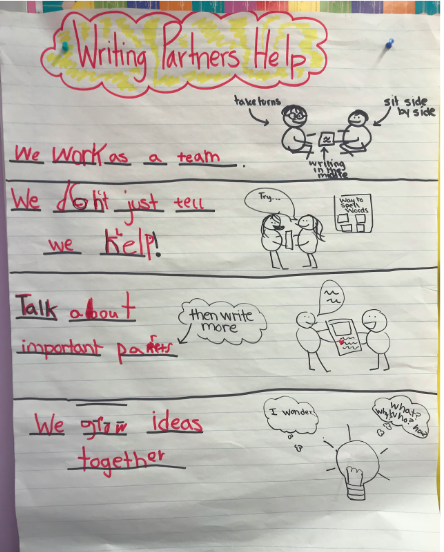 Writing Partners Help
take turns
sit side
by side
writing
in the
middle
We work as a team.
We don't just tell
we help!
Try...
Ways to
Spell
Words
Talk about
important parts
then write
more
We grow ideas
together
I wonder
what?
why? who? how